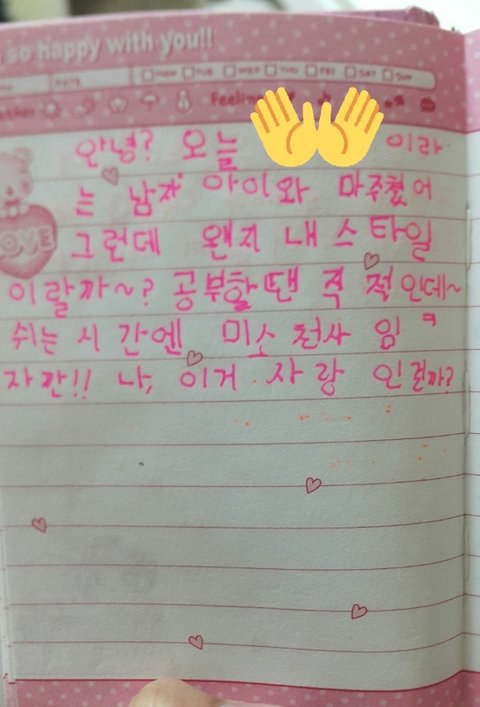 so happy with you!!
DATE □MON □TUE □WED □THU □FRI □SAT □SUN
Feeling
안녕? 오늘 이라
는 남자 아이와 마주쳤어
LOVE
그런데 왠지 내 스타일
이랄까~? 공부할땐 적인데~
쉬는 시간엔 미소 천사 임ㅋ
자깐!! 나, 이거 사랑 인걸까?